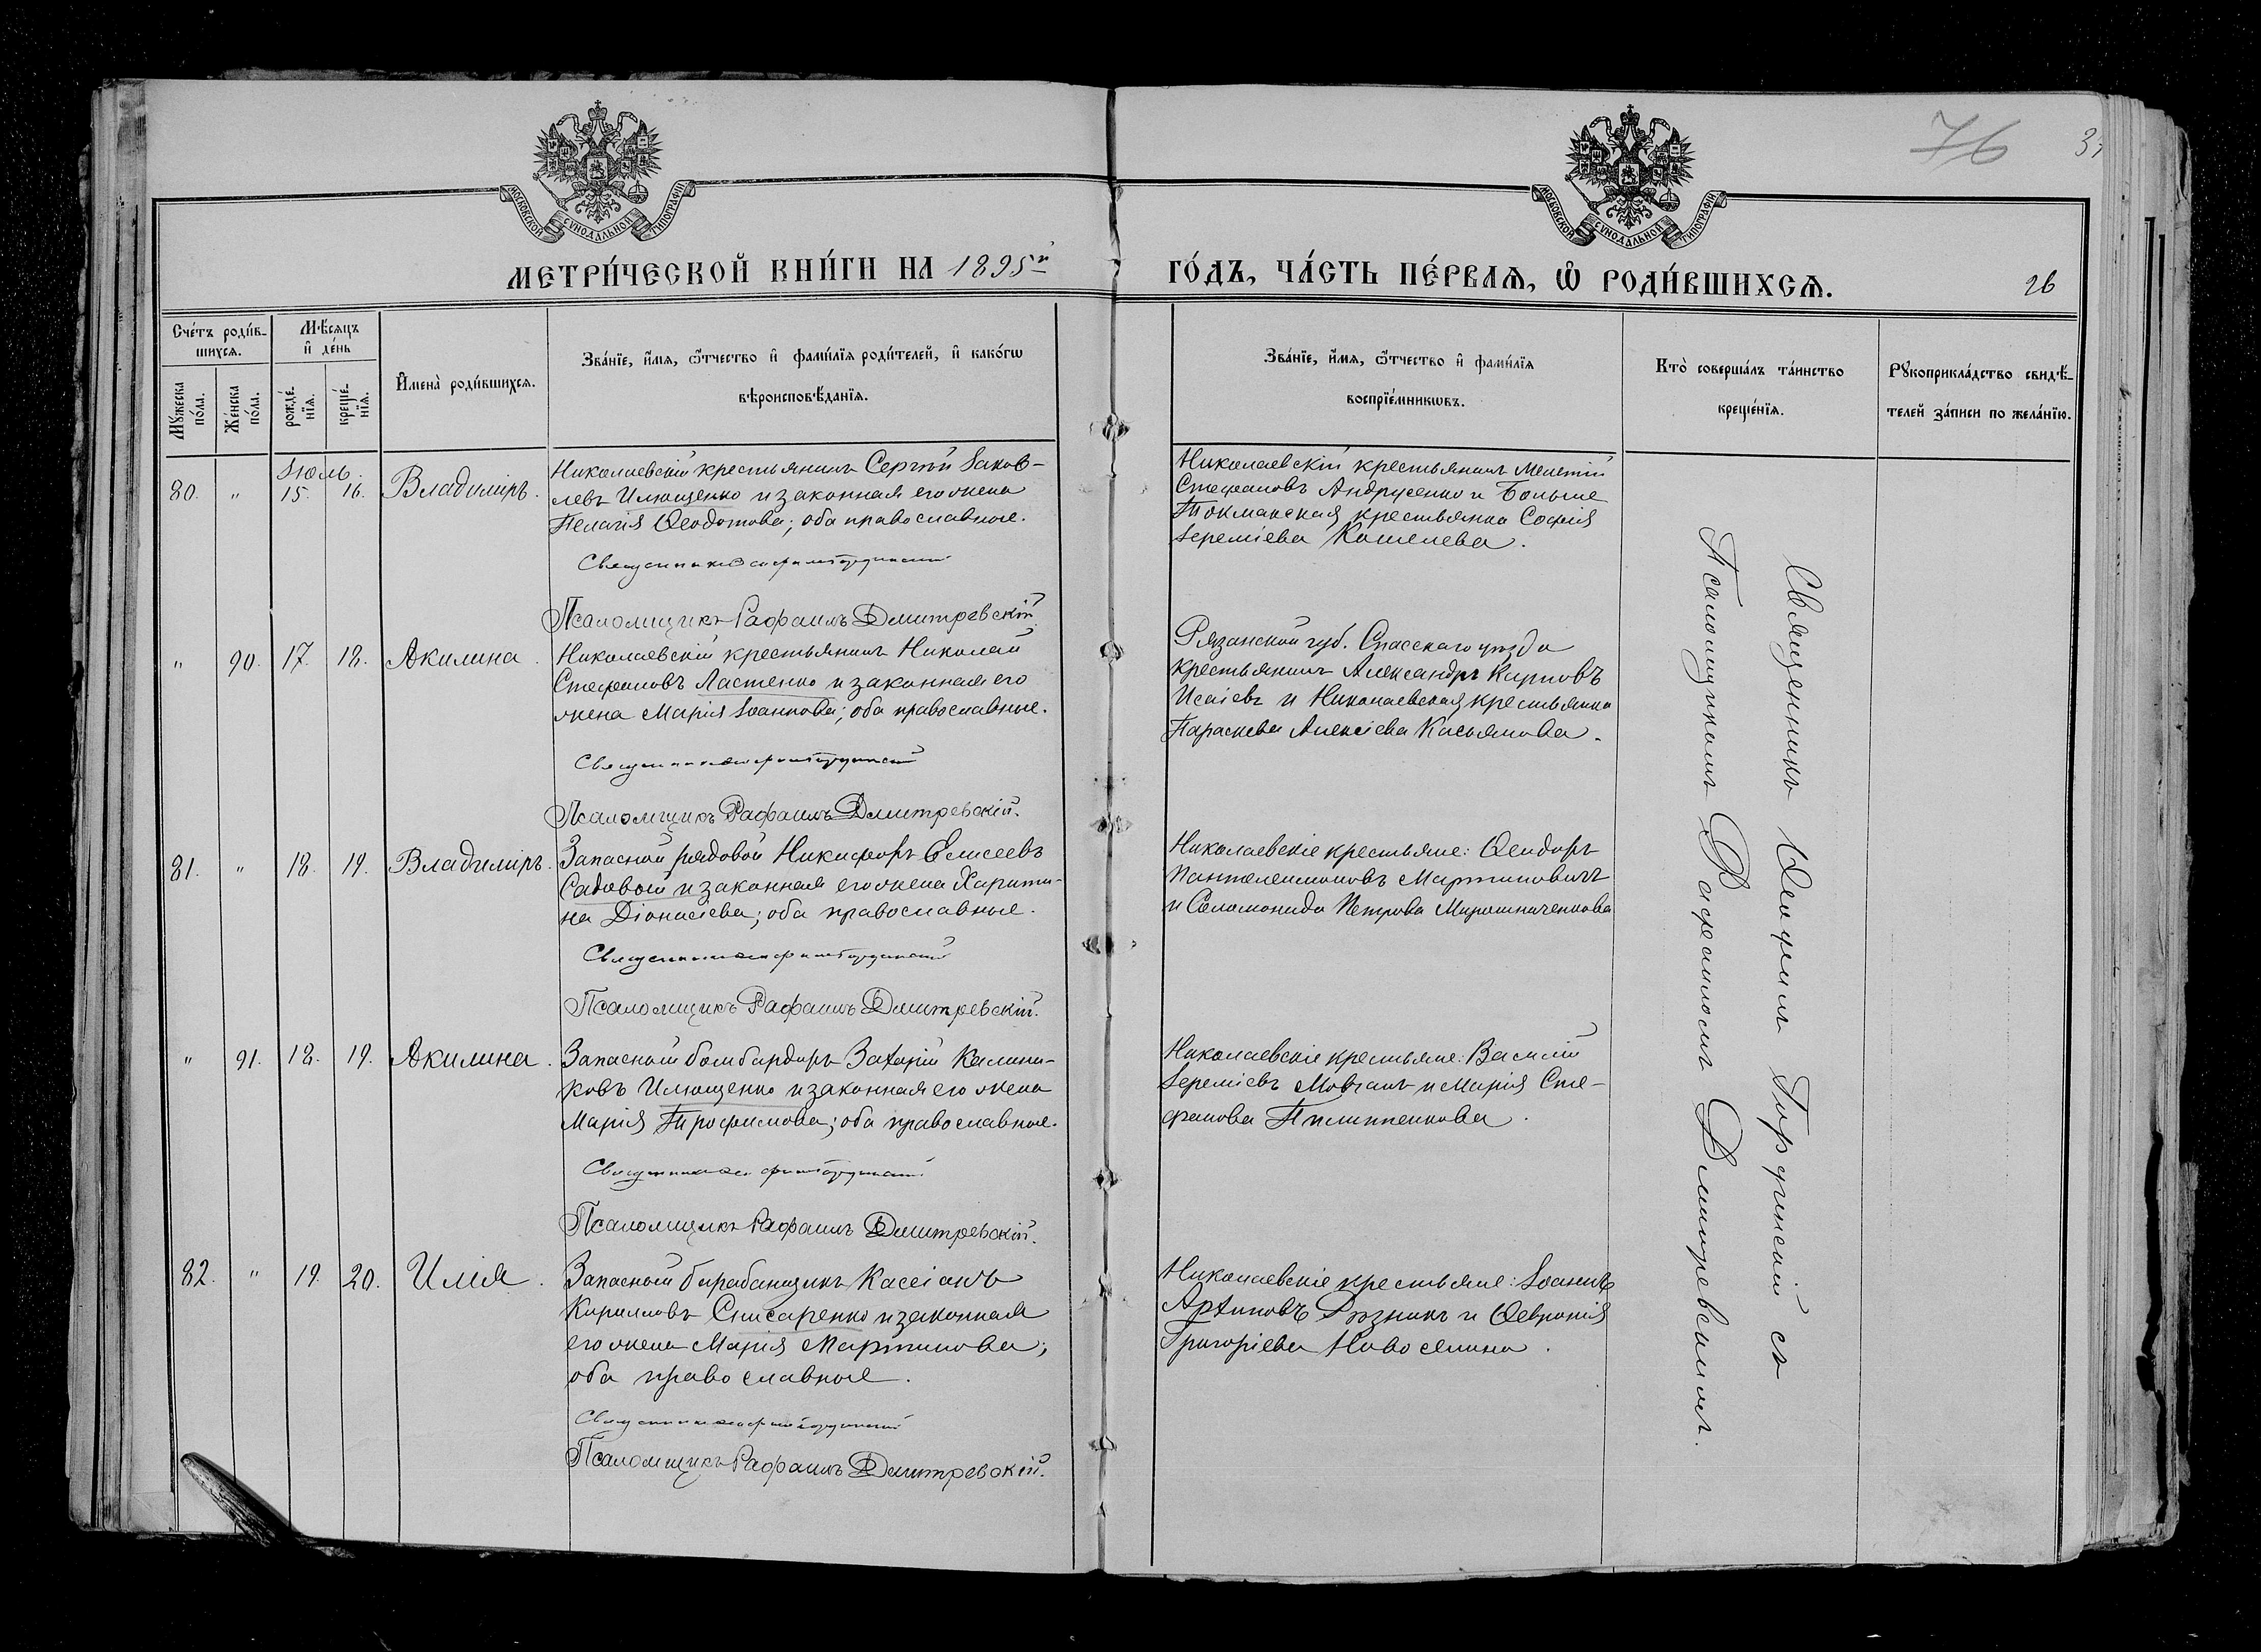 76
МОСКОВСКОЙ СУНОДАЛЬНОЙ ТИПОГРАФІИ
МОСКОВСКОЙ СУНОДАЛЬНОЙ ТИПОГРАФІИ
МЕТРИ́ЧЕСКОЙ КНИ́ГИ НА 1895й ГО́ДЪ, ЧА́СТЬ ПЕ́РВАѦ, Ѡ РОДИ́ВШИХСѦ.
26
Сче́тъ роди́в-
шихсѧ.
Мѣ́сѧцъ
и҆ де́нь
Мꙋ́жеска
по́ла.
Же́нска
по́ла.
рожде́-
нїѧ.
креще́-
нїѧ.
И҆мена̀ роди́вшихсѧ.
Зва́нїе, и҆́мѧ, ѻ҆́тчество и҆ фами́лїѧ роди́телей, и҆ како́гѡ
вѣроисповѣ́данїѧ.
Зва́нїе, и҆́мѧ, ѻ҆́тчество и҆ фами́лїѧ
воспрїе́мникѡвъ.
Кто̀ соверша́лъ та́инство
креще́нїѧ.
Рꙋкоприкла́дство свидѣ́-
телей за́писи по жела́нїю.
Іюль.
80. " 15. 16. Владиміръ.
Николаевскій крестьянинъ Сергѣй Іаков-
левъ Илющенко и законная его жена
Пелагія Ѳеодотова; оба православные.
Псаломщикъ Рафаилъ Дмитревскій.
Николаевскій крестьянинъ Мелетій
Стефановъ Андрусенко и Больше
Токмакская крестьянка Софія
Іереміева Кошелева.
" 90. 17. 18. Акилина.
Николаевскій крестьянинъ Николай
Стефановъ Ластенко и законная его
жена Марія Іоаннова; оба православные.
Псаломщикъ Рафаилъ Дмитревскій.
Рязанской губ. Спасскаго уѣзда
крестьянинъ Александръ Карповъ
Исаіевъ и Николаевская крестьянка
Параскева Алексіева Касьянова.
81. " 18. 19. Владиміръ.
Запасной рядовой Никифоръ Елисеевъ
Садовой и законная его жена Харити-
на Діонисіева; оба православные.
Псаломщикъ Рафаилъ Дмитревскій.
Николаевскіе крестьяне: Ѳеодоръ
Пантелеимоновъ Мартиновичъ
и Соломонида Петрова Мирошниченкова
" 91. 18. 19. Акилина.
Запасной бомбардиръ Захарій Калини-
ковъ Илющенко и законная его жена
Марія Трофимова; оба православные.
Псаломщикъ Рафаилъ Дмитревскій.
Николаевскіе крестьяне: Василій
Іереміевъ Мовчанъ и Марія Сте-
фанова Пилипенкова.
82. " 19. 20. Илія.
Запасной барабанщикъ Кассіанъ
Кирилловъ Слисаренко и законная
его жена Марія Мартинова;
оба православные.
Псаломщикъ Рафаилъ Дмитревскій.
Николаевскіе крестьяне: Іоаннъ
Архиповъ Рѣзникъ и Ѳевронія
Григоріева Новосёлина.
Священникъ Ѳеофилъ съ
Псаломщикомъ Рафаиломъ Дмитревскимъ.